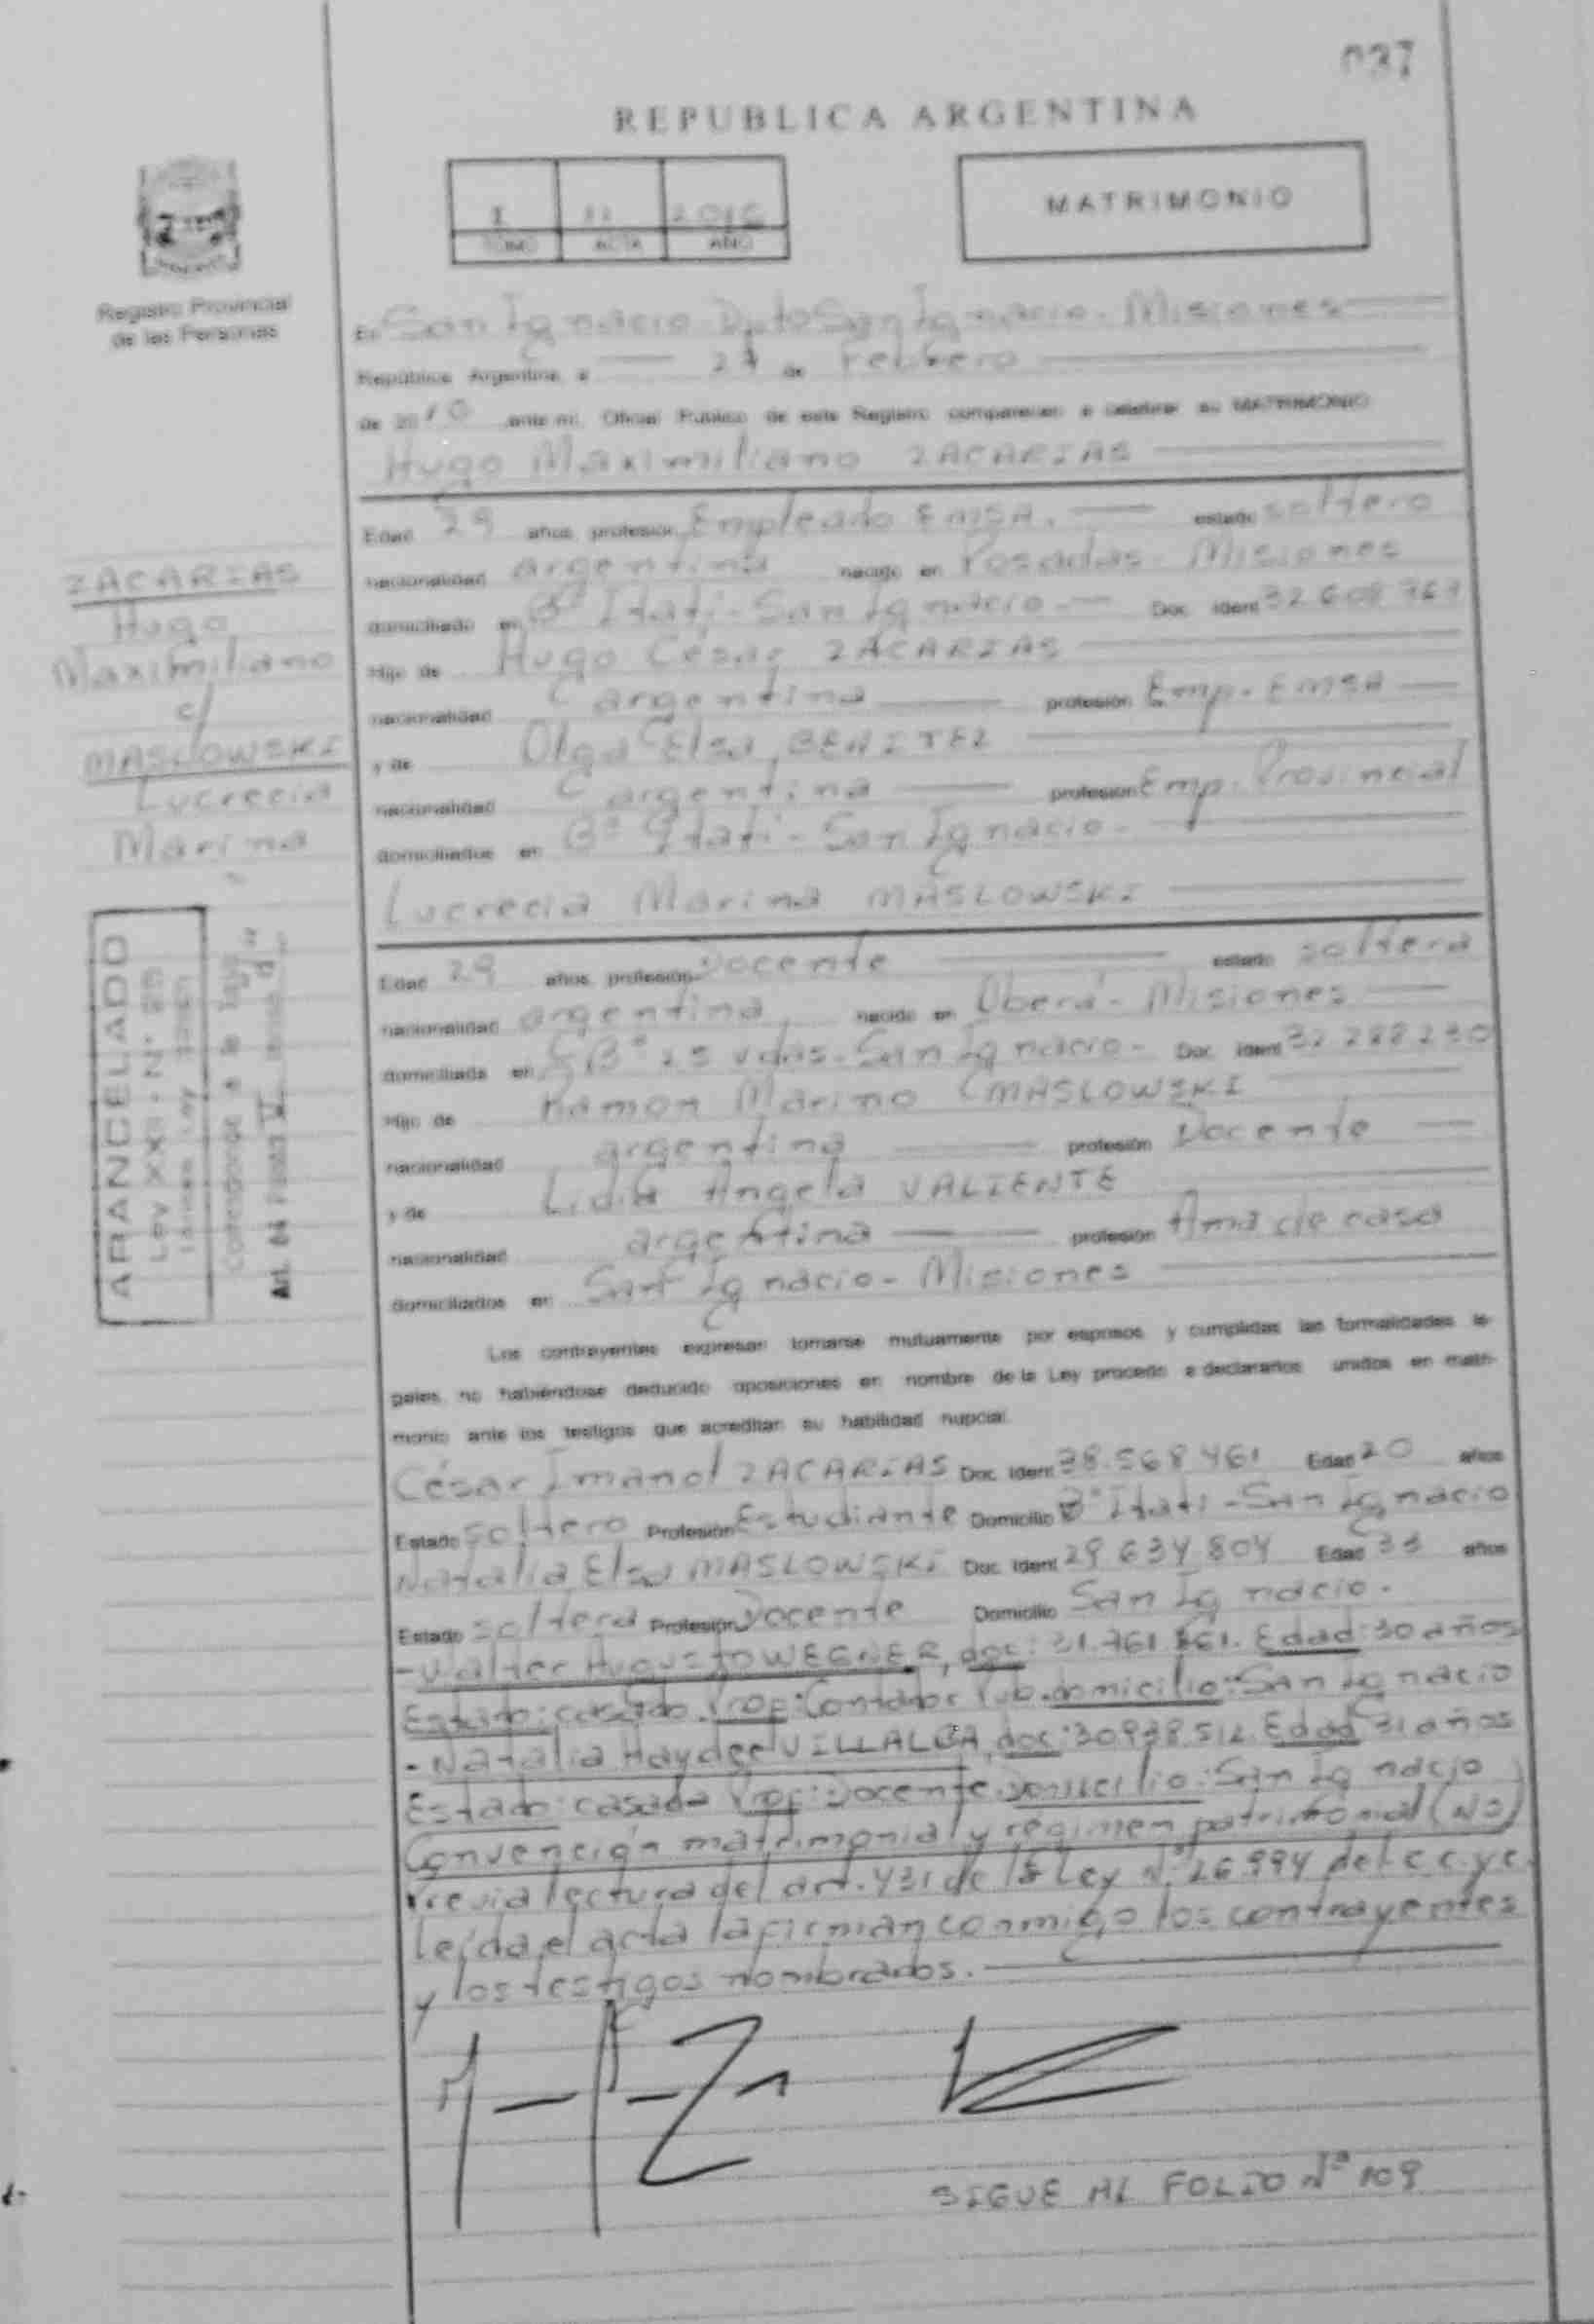 037
REPUBLICA ARGENTINA
I 11 2016
TOMO ACTA AÑO
MATRIMONIO
Registro Provincial
de las Personas
En San Ignacio Dpto San Ignacio - Misiones
República Argentina, a 27 de Febrero
de 20 ante mí, Oficial Público de este Registro comparecen a celebrar su MATRIMONIO
Hugo Maximiliano ZACARIAS
Edad 29 años profesión Empleado EMSA. estado soltero
nacionalidad argentina nacido en Posadas - Misiones
domiciliado en Bº Itatí - San Ignacio - Doc. Ident
Hijo de Hugo César ZACARIAS
nacionalidad argentina profesión Emp. EMSA
y de Olga Elsa BENITEZ
nacionalidad argentina profesión Emp. Provincial
domiciliados en Bº Itatí - San Ignacio -
Lucrecia Marina MASLOWSKI
Edad 29 años profesión Docente estado soltera
nacionalidad argentina nacido en Oberá - Misiones
domiciliada en Bº 25 vdas - San Ignacio - Doc. Ident 32 288 230
Hijo de Ramon Marino MASLOWSKI
nacionalidad argentina profesión Docente
y de Lidia Angela VALIENTE
nacionalidad argentina profesión Ama de casa
domiciliados en San Ignacio - Misiones
Los contrayentes expresan tomarse mutuamente por esposos y cumplidas las formalidades le-
gales, no habiéndose deducido oposiciones en nombre de la Ley procedo a declararlos unidos en matri-
monio ante los testigos que acreditan su habilidad nupcial.
César Imanol ZACARIAS Doc. Ident 38.568 461 Edad 20 años
Estado soltero Profesión Estudiante Domicilio Bº Itatí - San Ignacio
Natalia Elsa MASLOWSKI Doc. Ident 29 634 804 Edad 33 años
Estado soltera Profesión Docente Domicilio San Ignacio.
- Walter Augusto WEGNER, doc: 31.761 Edad: 30 años
Estado: casado. Prof: Contador Pub. domicilio: San Ignacio
- Natalia Haydee VILLALBA, doc: 30.938.512. Edad 31 años
Estado: casada Prof: Docente. Domicilio: San Ignacio
Convención matrimonial y régimen patrimonial (NO)
Previa lectura del art. 431 de la Ley Nº 26.994 del C.C.y C.
Leída el acta la firman conmigo los contrayentes
y los testigos nombrados.
SIGUE AL FOLIO Nº 109
ZACARIAS
Hugo
Maximiliano
c/
MASLOWSKI
Lucrecia
Marina
ARANCELADO
Ley XXII - Nº 25
Corresponde a la Tasa
Art.